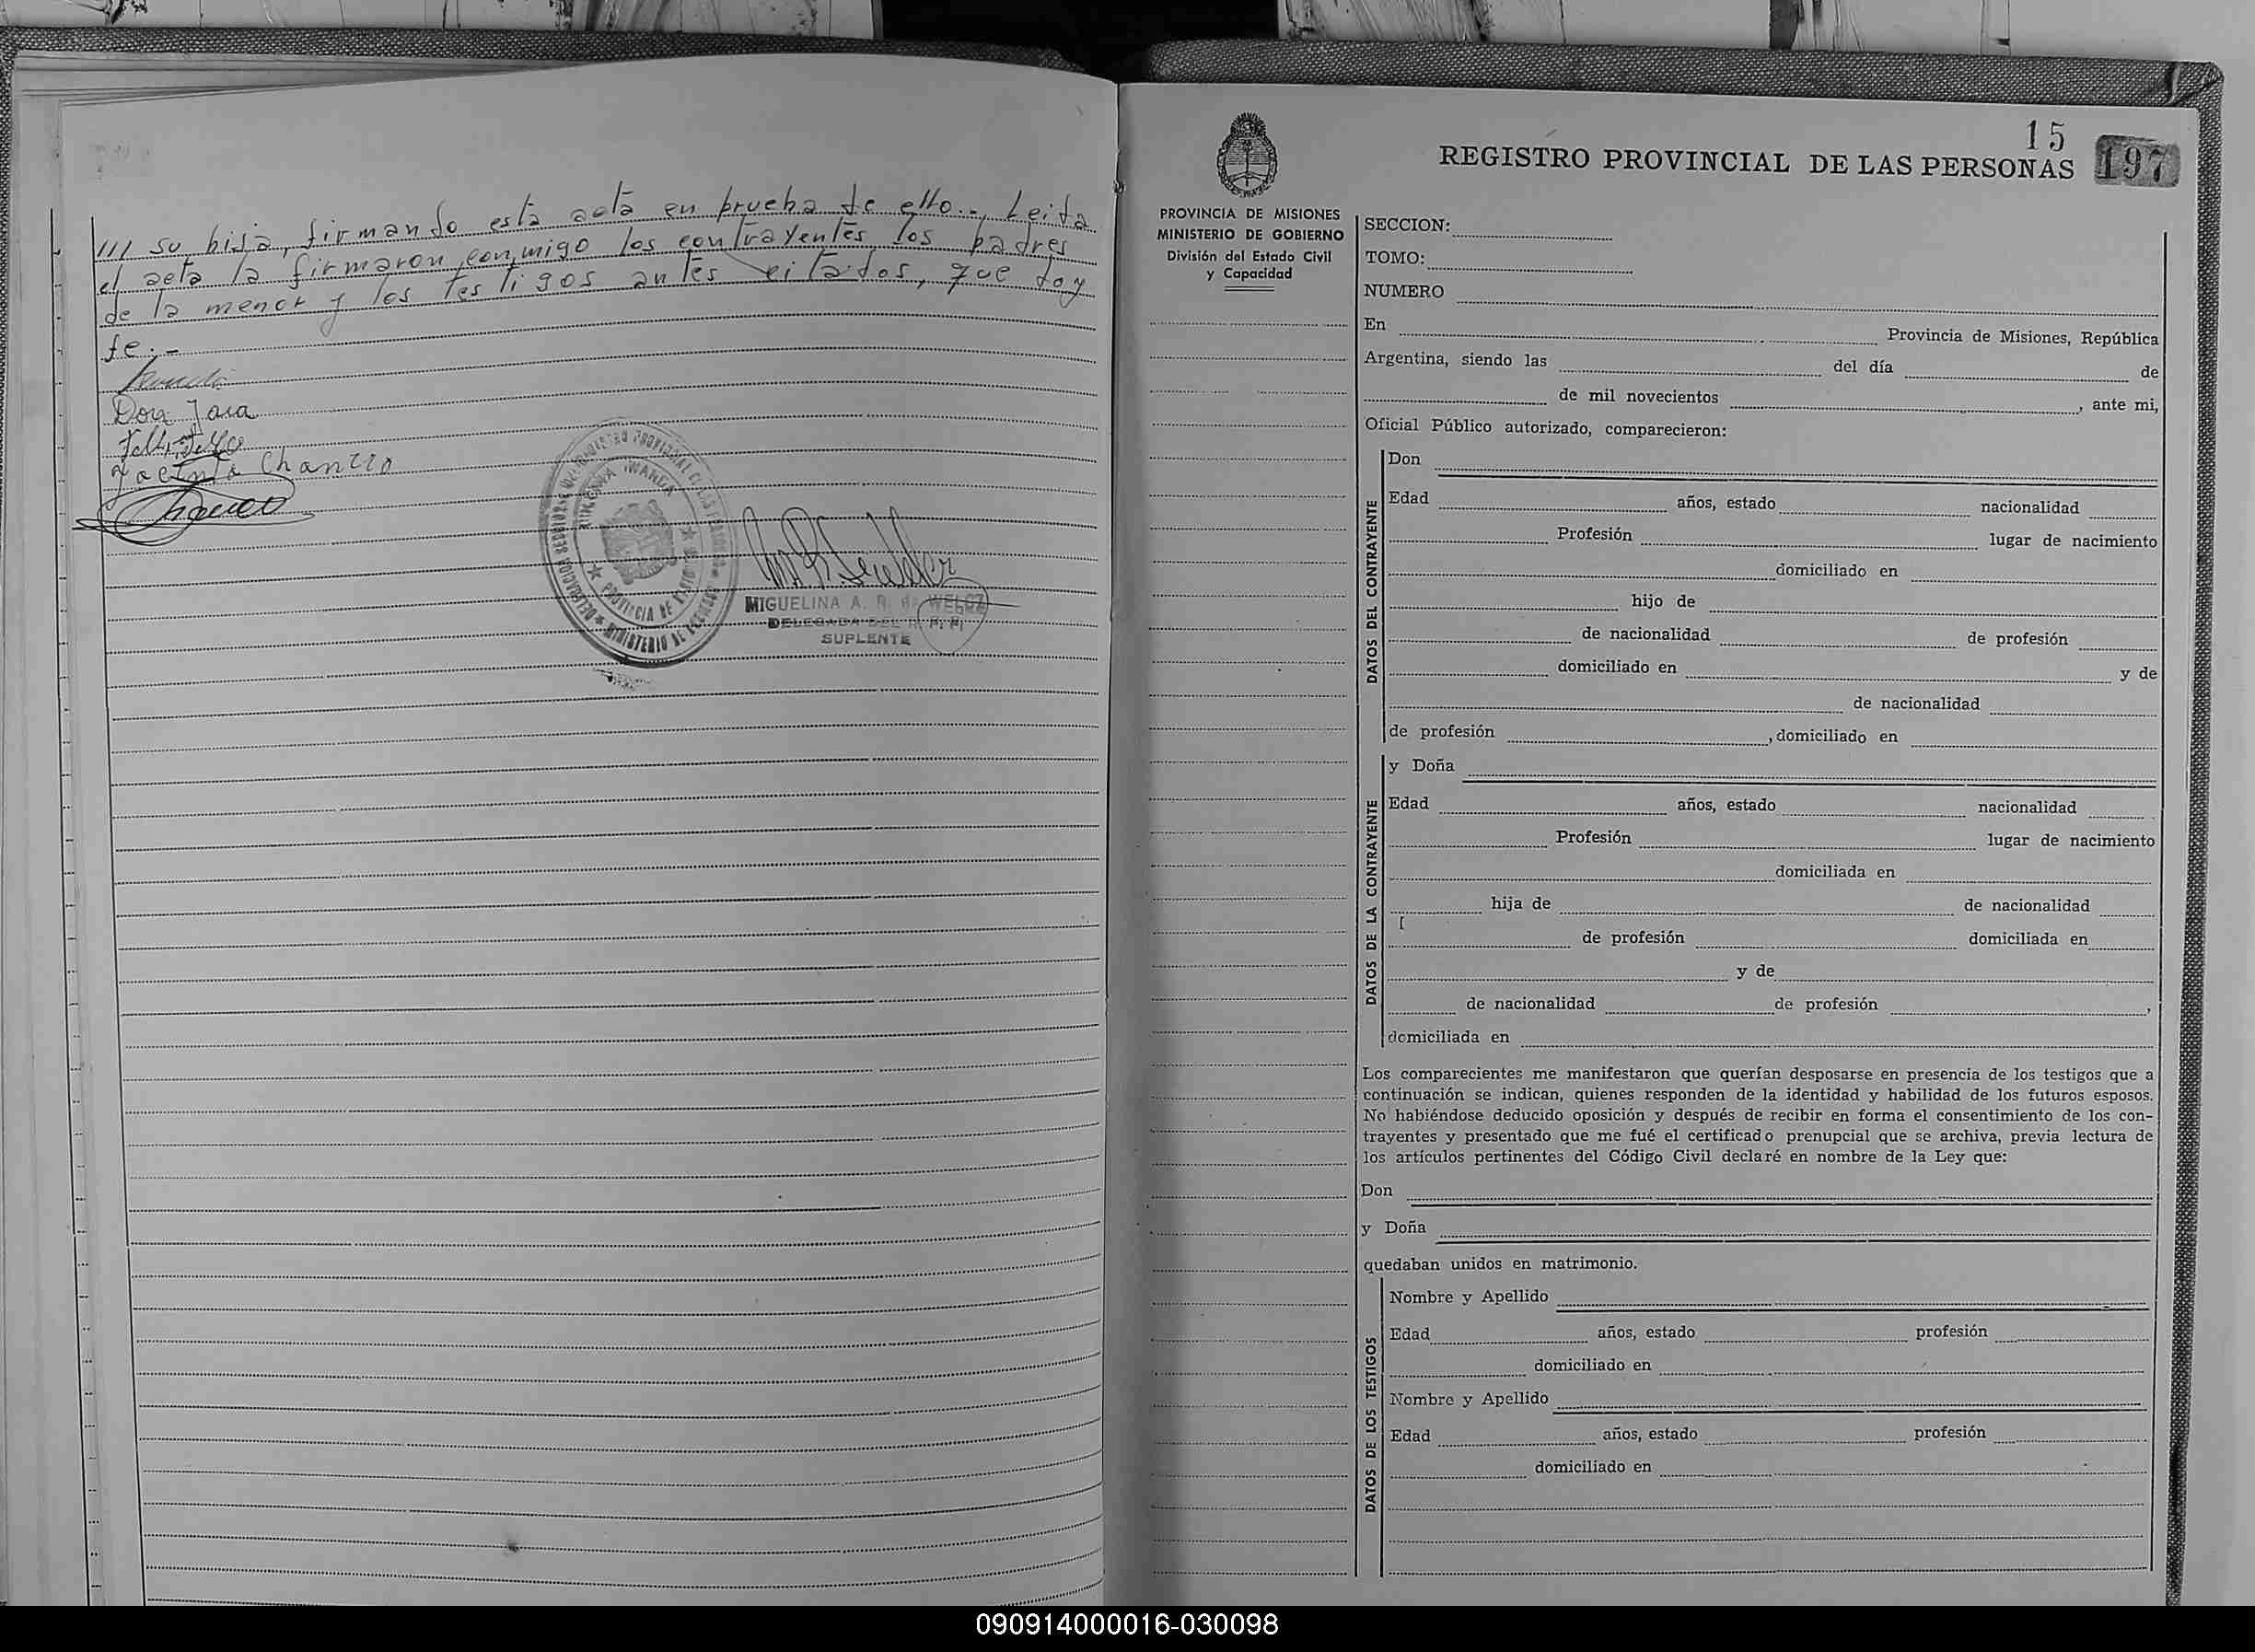 /// su hija, firmando esta acta en prueba de ello.-, Leida
el acta la firmaron conmigo los contrayentes los padres
de la menor y los testigos antes citados, que doy
fe.-
Dora Jara
Jacinta
MIGUELINA A. R. de WELCZ
DELEGADA DEL R. P. P.
SUPLENTE
15
REGISTRO PROVINCIAL DE LAS PERSONAS
197
PROVINCIA DE MISIONES
MINISTERIO DE GOBIERNO
División del Estado Civil
y Capacidad
SECCION:
TOMO:
NUMERO
En Provincia de Misiones, República
Argentina, siendo las del día de
de mil novecientos , ante mi,
Oficial Público autorizado, comparecieron:
DATOS DEL CONTRAYENTE
Don
Edad años, estado nacionalidad
Profesión lugar de nacimiento
domiciliado en
hijo de
de nacionalidad de profesión
domiciliado en y de
de nacionalidad
de profesión , domiciliado en
DATOS DE LA CONTRAYENTE
y Doña
Edad años, estado nacionalidad
Profesión lugar de nacimiento
domiciliada en
hija de de nacionalidad
de profesión domiciliada en
y de
de nacionalidad de profesión ,
domiciliada en
Los comparecientes me manifestaron que querían desposarse en presencia de los testigos que a
continuación se indican, quienes responden de la identidad y habilidad de los futuros esposos.
No habiéndose deducido oposición y después de recibir en forma el consentimiento de los con-
trayentes y presentado que me fué el certificado prenupcial que se archiva, previa lectura de
los artículos pertinentes del Código Civil declaré en nombre de la Ley que:
Don
y Doña
quedaban unidos en matrimonio.
DATOS DE LOS TESTIGOS
Nombre y Apellido
Edad años, estado profesión
domiciliado en
Nombre y Apellido
Edad años, estado profesión
domiciliado en
090914000016-030098